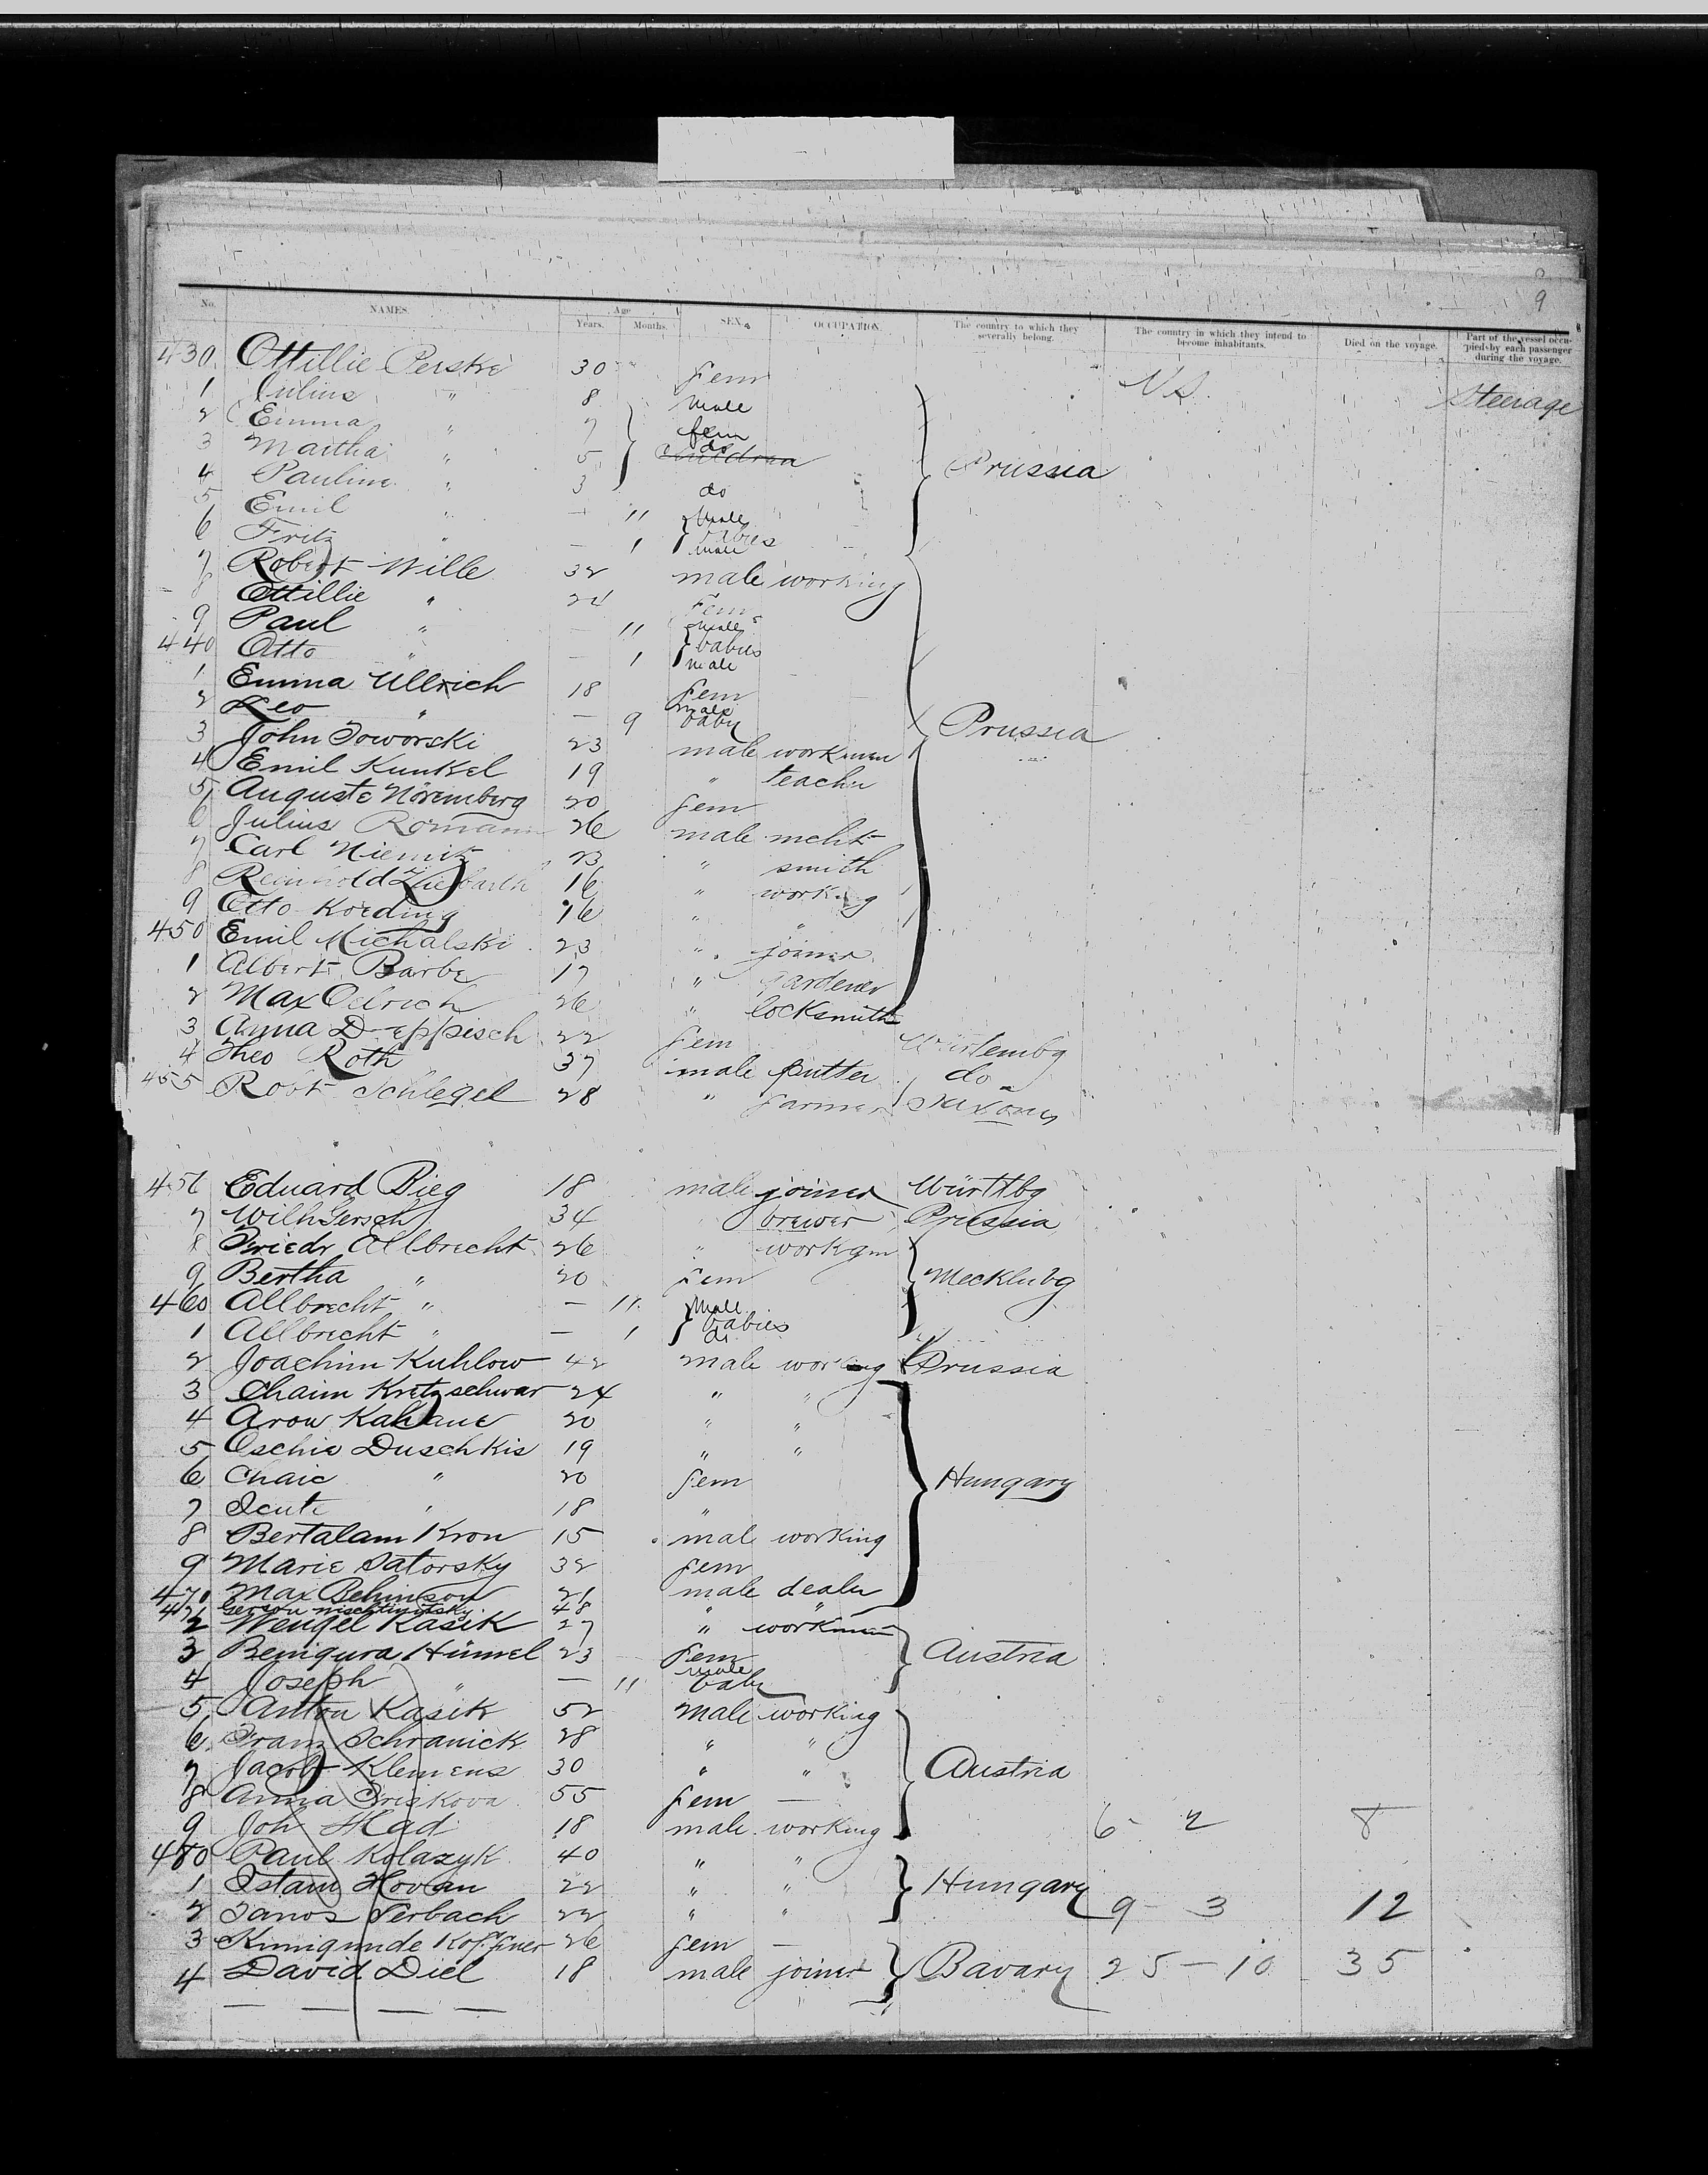 9
No. NAMES. Age Years. Months. SEX. OCCUPATION. The country to which they severally belong. The country in which they intend to become inhabitants. Died on the voyage. Part of the vessel occupied by each passenger during the voyage.
430 Ottillie Perske 30 fem Steerage
1 Julius " 8 male
2 Emma " 7 fem
3 Martha " 5 do children Prussia
4 Pauline " 3 do
5 Emil " — 11 male
6 Fritz " — 1 babies male
7 Robert Wille 32 male working
8 Ottillie " 24 Fem
9 Paul " — 11 male
440 Otto " — 1 babies male
1 Emma Ullrich 18 fem
2 Leo " — 9 male baby
3 John Soworski 23 male workman Prussia
4 Emil Kunkel 19 " teacher
5 Auguste Nöremberg 20 fem
6 Julius Romann 26 male mcht
7 Carl Niemitz 23 " smith
8 Reinhold 16 " working
9 Otto Koeding 16 " "
450 Emil Michalski 23 " joiner
1 Albert Barbe 17 " gardener
2 Max Oelrich 26 " locksmith
3 Anna D eppisch 22 fem Würtembg
4 Theo Roth 37 male putter do
455 Robt Schlegel 28 " farmer Saxony
456 Eduard Bieg 18 male joiner Württbg
7 Wilh Gersch 34 brewer Prussia
8 Friedr Allbrecht 26 " workgm
9 Bertha " 20 fem Mecklnbg
460 Allbrecht " — 11 male
1 Allbrecht " — 1 babies do
2 Joachim Kuhlow 42 male working Prussia
3 Chaim Kretzschwar 24 " "
4 Aron Kahane 20 " "
5 Oschie Duschkis 19 " "
6 Chaie " 20 fem Hungary
7 Scute " 18 "
8 Bertalam Kron 15 male working
9 Marie Satorsky 32 fem
470 Max Behinson 21 male dealer
471 Gerson 48 " "
2 Wenzel Kasik 27 " workman
3 Benigura Hümel 23 Fem Austria
4 Joseph " — 11 male baby
5 Anton Kasik 52 male working
6 Franz Schranick 28 " "
7 Jacob Klemens 30 " " Austria
8 Anna Briskova 55 fem —
9 Joh Hlad 18 male working 6 - 2 8
480 Paul Kolazyk 40 " "
1 Istam Hovan 22 " " Hungary
2 Janos Terbach 22 " " 9 - 3 12
3 Kunigunde Koffner 26 fem —
4 David Diel 18 male joiner Bavary 25 - 10 35